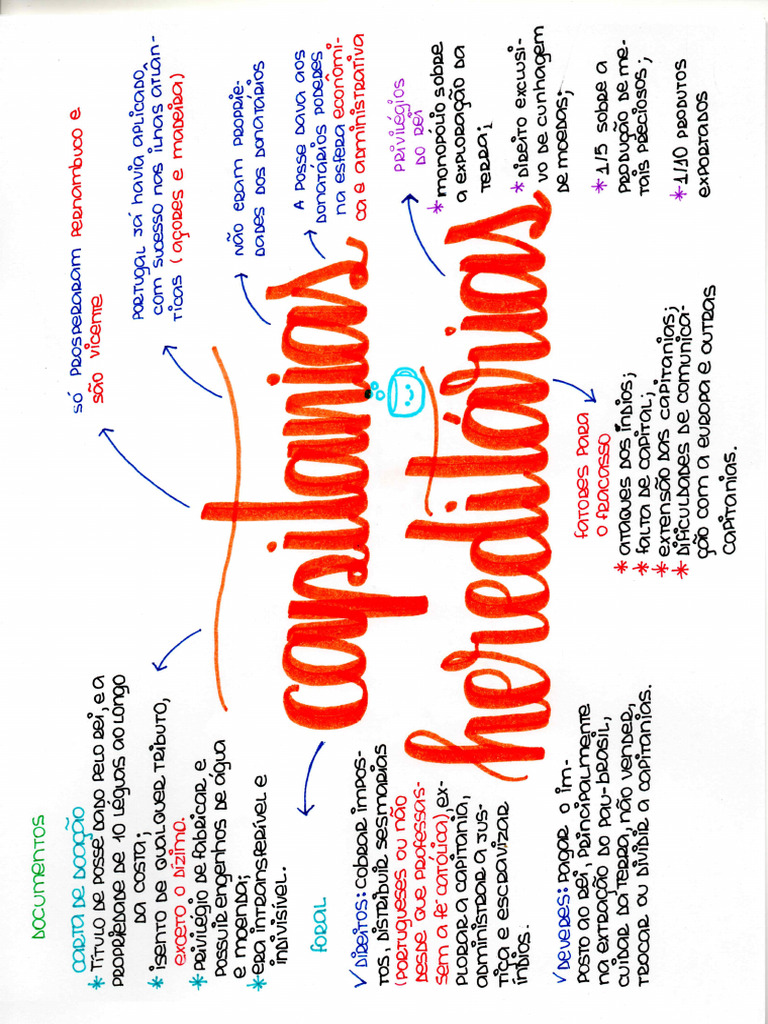 DOCUMENTOS
CARTA DE DOAÇÃO
* TÍTULO DE POSSE DADO PELO REI, E A
PROPRIEDADE DE 10 LÉGUAS AO LONGO
DA COSTA;
* ISENTO DE QUALQUER TRIBUTO,
EXCETO O DÍZIMO.
* PRIVILÉGIO DE FABRICAR, E
POSSUIR ENGENHOS DE ÁGUA
E MOENDA;
* ERA INTRANSFERÍVEL E
INDIVISÍVEL.
FORAL
✓ DIREITOS: COBRAR IMPOS-
TOS, DISTRIBUIR SESMARIAS
(PORTUGUESES OU NÃO
DESDE QUE PROFESSAS-
SEM A FÉ CATÓLICA), EX-
PLORAR A CAPITANIA,
ADMINISTRAR A JUS-
TIÇA E ESCRAVIZAR
ÍNDIOS.
✓ DEVERES: PAGAR O IM-
POSTO AO REI, PRINCIPALMENTE
NA EXTRAÇÃO DO PAU-BRASIL,
CUIDAR DA TERRA, NÃO VENDER,
TROCAR OU DIVIDIR A CAPITANIAS.
capitanias
hereditárias
SÓ PROSPERARAM PERNAMBUCO E
SÃO VICENTE
PORTUGAL JÁ HAVIA APLICADO,
COM SUCESSO NAS ILHAS ATLÂN-
TICAS (AÇORES E MADEIRA)
NÃO ERAM PROPRIE-
DADES DOS DONATÁRIOS
A POSSE DAVA AOS
DONATÁRIOS PODERES
NA ESFERA ECONÔMI-
CA E ADMINISTRATIVA
PRIVILÉGIOS
DO REI
* MONOPÓLIO SOBRE
A EXPLORAÇÃO DA
TERRA;
* DIREITO EXCLUSI-
VO DE CUNHAGEM
DE MOEDAS;
* 1/5 SOBRE A
PRODUÇÃO DE ME-
TAIS PRECIOSOS;
* 1/10 PRODUTOS
EXPORTADOS
FATORES PARA
O FRACASSO
* ATAQUES DOS ÍNDIOS;
* FALTA DE CAPITAL;
* EXTENSÃO DAS CAPITANIAS;
* DIFICULDADES DE COMUNICA-
ÇÃO COM A EUROPA E OUTRAS
CAPITANIAS.